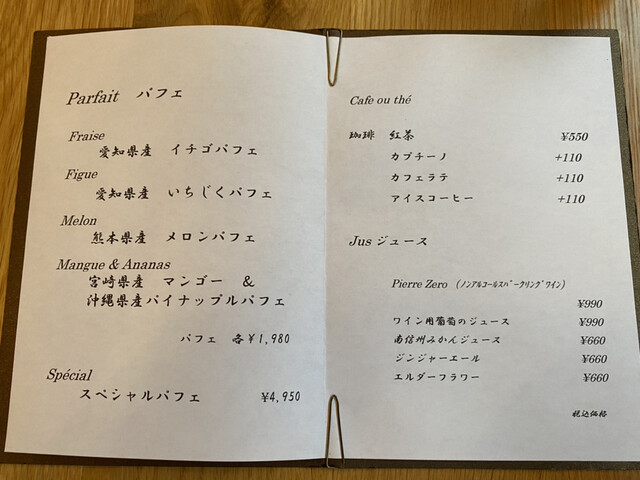 Parfait パフェ
Fraise
愛知県産 イチゴパフェ
Figue
愛知県産 いちじくパフェ
Melon
熊本県産 メロンパフェ
Mangue & Ananas
宮崎県産 マンゴー &
沖縄県産パイナップルパフェ
パフェ 各¥1,980
Spécial
スペシャルパフェ ¥4,950
Cafe ou thé
珈琲 紅茶 ¥550
カプチーノ +110
カフェラテ +110
アイスコーヒー +110
Jus ジュース
Pierre Zero (ノンアルコールスパークリングワイン)
¥990
ワイン用葡萄のジュース ¥990
南信州みかんジュース ¥660
ジンジャーエール ¥660
エルダーフラワー ¥660
税込価格